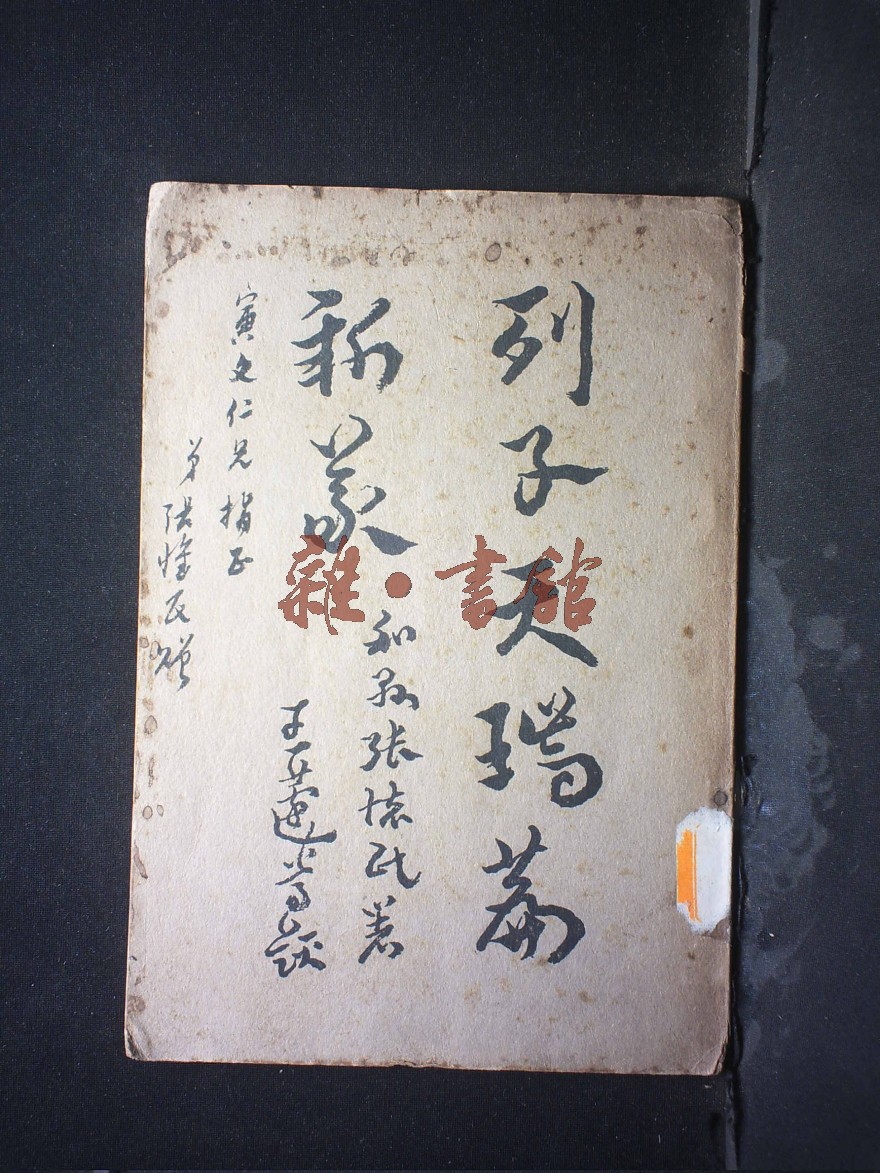 列子天瑞篇
新義
和縣張懷民著
王蘧常題
寅文仁兄指正
弟張懷民贈
雜·書館